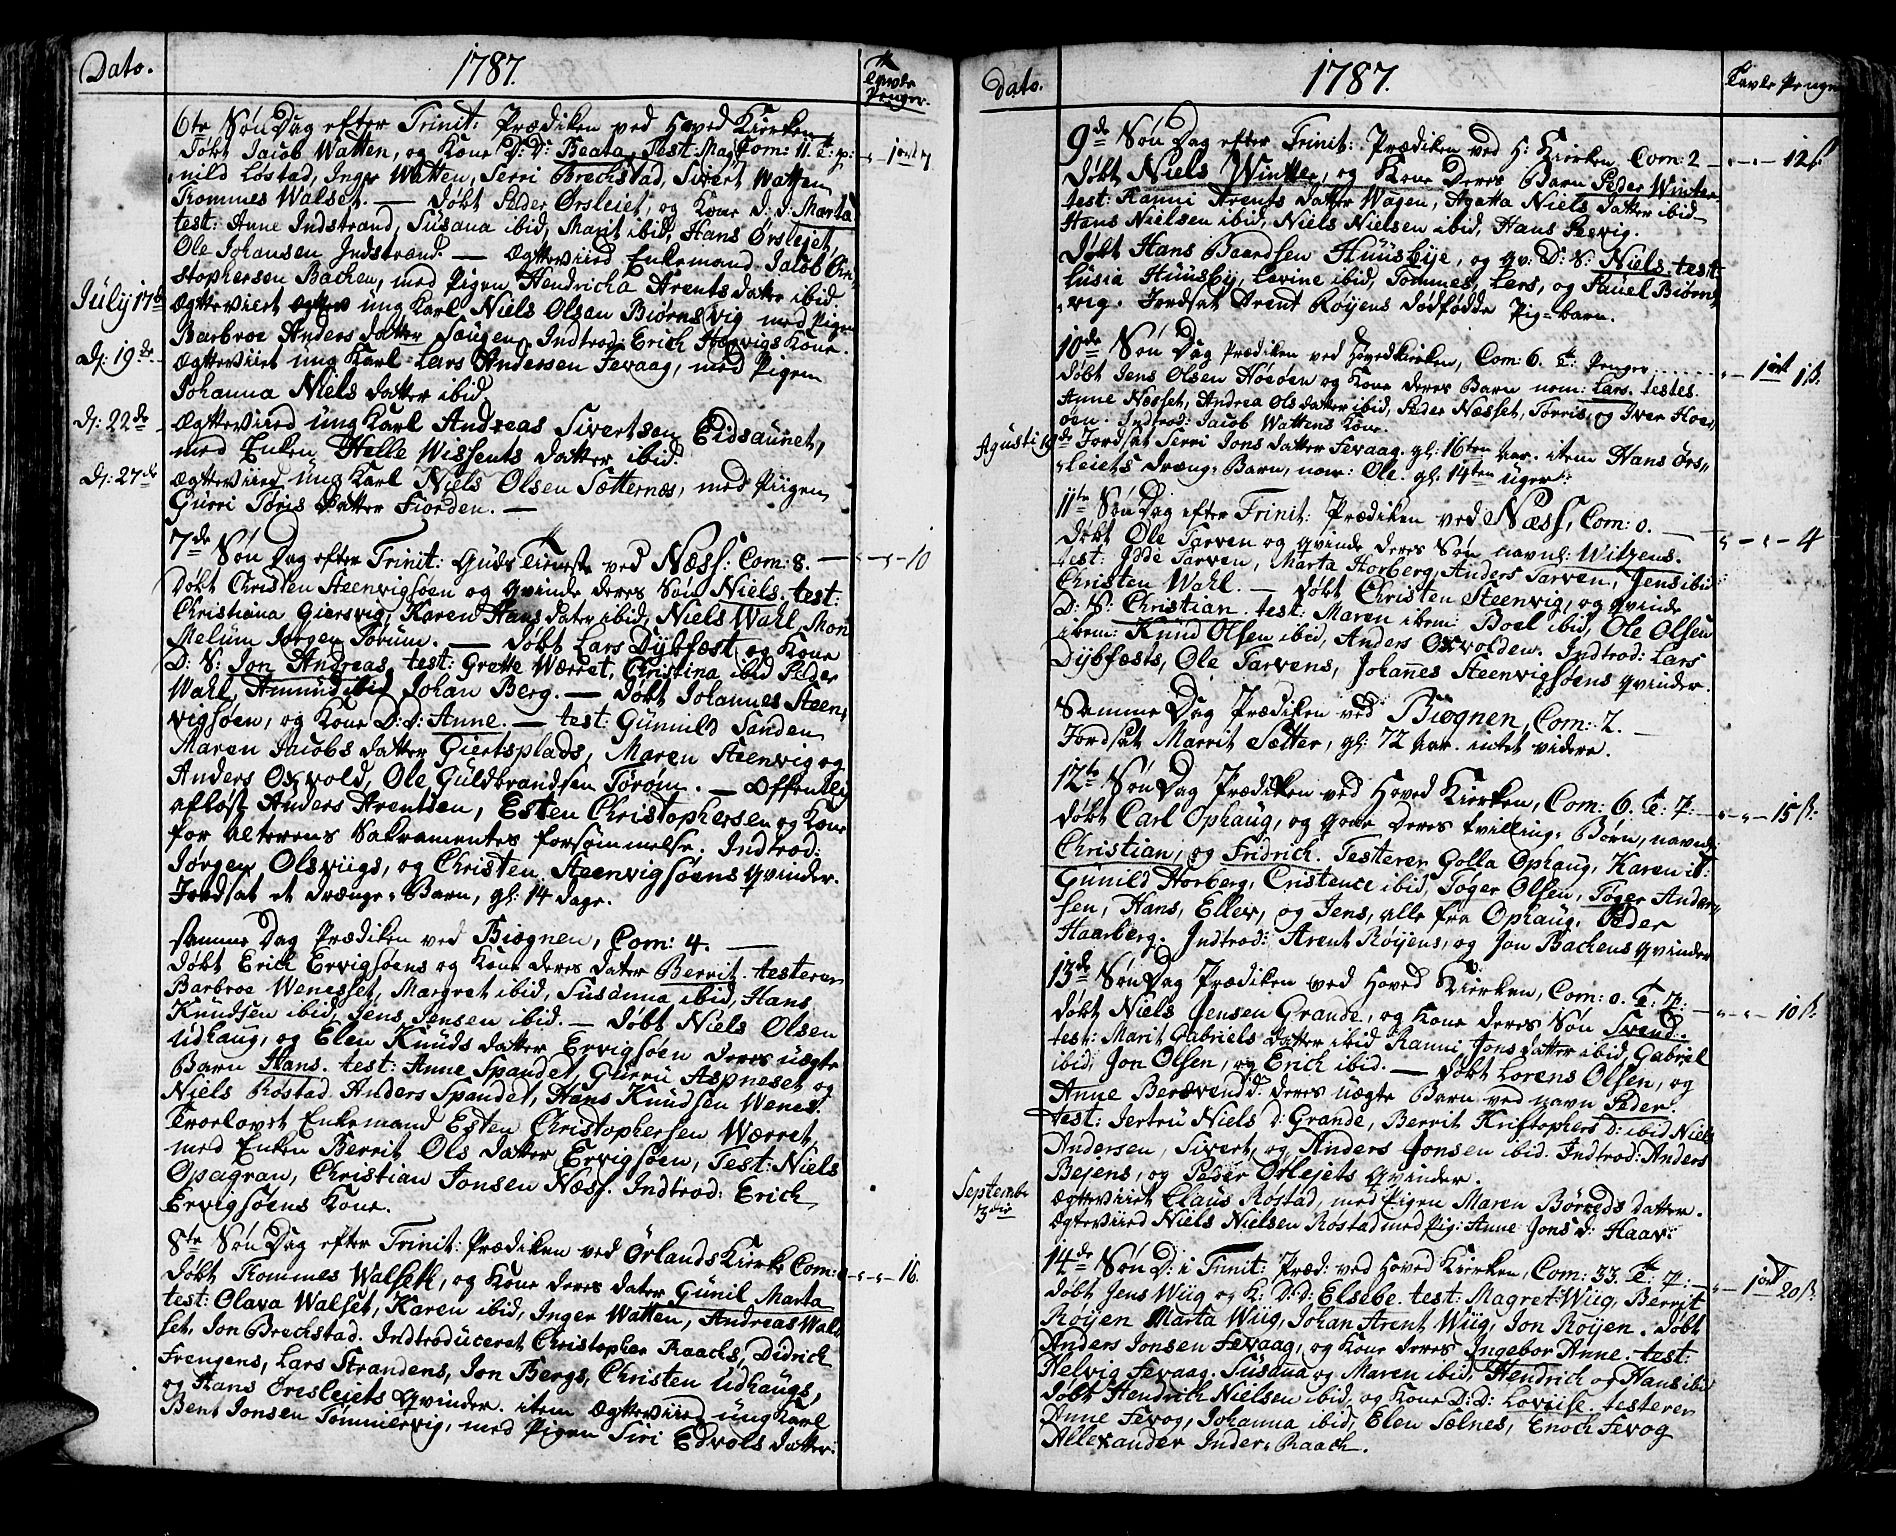 Dato.
1787.
Tavle
Penger.
6te Søn Dag efter Trinit: Prædiken ved Hoved Kierken
Døbt Jacob Watten, og Kone D: D: Beata, Test: Mag Com: 11. T: p: 1 ort 7
nild Løstad, Inger Watten, Serri Brechstad, Sivert Watten
Tommes Walset. — Døbt Peder Ørsleiet, og Kone D: d: Marta
test: Anne Indstrand, Susana ibid, Marit ibid, Hans Ørslejet,
Ole Johansen Indstrand. — Ægtevied Enkemand Jacob Chri
stophersen Bachen, med Pigen Hendricha Arents datter ibid.
July 17de Ægteviiet ung Karl Niels Olsen Biørnsvig med Pigen
Barbroe Anders datter Saugen, Indtrod: Erich Hervigs Kone.
D: 19de Ægteviiet ung Karl Lars Andersen Fevaag, med Pigen
Johanna Niels datter ibid
D: 22de Ægtevied ung Karl Andreas Sivertsen Eidsaunet,
med Enken Helle Wissents datter ibid.
D: 27de Ægteviied ung Karl Niels Olsen Sætternæs, med Piigen
Gurri Tøris datter Fiorden. —
7de Søn Dag efter Trinit: Guds Tieneste ved Næss: Com: 8. — 10
Døbt Christen Steenvigsøen og qvinde deres Søn Niels. test:
Christiana Giersvig, Karen Hans dater ibid, Niels Wahl, Mon
Melum Jørgen Torum. — Døbt Lars Dybfæst og Kone
D: S: Jon Andreas, test: Grette Wærret, Christina ibid Peder
Wahl, Amund ibid Johan Berg. — Døbt Johannes Steen
vigsøen, og Kone D: d: Anne. — test: Gunnild Sanden
Maren Jacobs datter Giertsplads, Maren Steenvig og
Anders Oxvold, Ole Guldbrandsen Tørøm. — Offentlig
afløst Anders Arentsen, Esten Christophersen og Kone
for alterens Sakramentes forsømmelse. Indtrod:
Jørgen Olsviigs, og Christen Steenvigsøens qvinder.
Jordsat et drænge Barn, gl: 14 dage.
samme Dag Prædiken ved Biognen, Com: 4. —
Døbt Erich Ervigsøens og Kone deres dater Berrit. testerer
Barbroe Wenesset, Margret ibid, Susanna ibid, Hans
Knudsen ibid, Jens Jensen ibid. — Døbt Niels Olsen
Udhaug, og Elen Knuds datter Ervigsøen deres uægte
Barn Hans. test: Anne Spandet, Gurru Aspneset og
Niels Røstad Anders Spandet, Hans Knudsen Wenes.
Troelovet Enkemand Esten Christophersen Wærret,
med Enken Berrit Ols datter Ervigsøen, Test: Niels
Opagran, Christian Jonsen Næss. Indtrod: Erich
Ervigsøens Kone.
8te Søn Dag efter Trinit: Prædiken ved Ørlands Kierke Com: 16.
Døbt Tommes Walseth, og Kone deres dater Gunil Marta
test: Olava Walset, Karen ibid, Inger Watten, Andreas Wal
set, Jon Brechstad. Indtroduceret Christopher Raachs, Didrich
Frengens, Lars Strandens, Jon Bergs, Christen Udhaugs,
og Hans Øresleiets qvinder. item Ægteviied ung Karl
Bent Jonsen Tommiervig, med Pigen Siri Edvols datter.
Dato.
1787.
Tavle Penge
9de Søn Dag efter Trinit: Prædiken ved H: Kierken Com: 2 — 12 s
Døbt Niels Winter, og Kone Deres Barn Peder Winter
test: Kanni Arents datter Wagen, Agatta Niels datter ibid
Hans Nielsen ibid, Niels Nielsen ibid, Hans Revig.
Døbt Hans Baardsen Huusbye, og qv. D: S: Niels test:
Lusia Huusby, Lavine ibid, Tommes, Lars, og Pauel Biørn
vig. Jordsat Arent Royens dødfødde Pig-barn.
10de Søn Dag Prædiken ved Hovedkierken, Com: 6. T: Penger — 1 ort 1 s:
Døbt Jens Olsen Høeøen og Kone deres Barn nom: Lars. testes
Anne Næsset, Andrea Ols datter ibid, Peder Næsset, Torris og Iver Hoe
øen. Indtrod: Jacob Wattens Kone.
Agusti 19de Jordsat Serri Jons datter Fevaag. gl: 16ten aar. item Hans Ørs
leiets dræng-Barn, nom: Ole. gl: 14ten uger.
11te Søn Dag efter Trinit: Prædiken ved Næss, Com: 0. — 4
Døbt Ole Tarven og qvinde, deres Søn navnl: Wilgens.
test: Idde Tarven, Marta Horberg, Anders Tarven, Jens ibid
Christen Wahl. — Døbt Christen Steenvig, og qvinde
D: S: Christian. test: Maren ibem: Boel ibid, Ole Olsen
ibem: Knud Olsen ibid, Anders Oxvolden. Indtrod: Lars
Dybfæsts, Ole Tarvens, Johanes Steenvigsøens qvinder.
Samme Dag Prædiken ved Biognen, Com: 2. —
Jordsat Marrit Sætter, gl: 72 aar. intet videre.
12te Søn Dag Prædiken ved Hoved Kierken, Com: 6. T: p: — 15 s:
Døbt Carl Ophaug, og qone deres tvilling-Børn, navnl:
Christian, og Fridrich. Testerer Golla Ophaug, Karen it:
Gunild Horberg, Cristence ibid, Tøger Olsen, Tøger Ander
sen, Hans, Eller, og Jens, alle fra Ophaug, Peder
Haarberg. Indtrod: Arent Røijens, og Jon Bachens qvinder
13de Søn Dag Prædiken ved Hoved Kierken, Com: 0. T: P: — 10 s:
Døbt Niels Jensen Grande, og Kone deres Søn Svend.
test: Marit Gabriels datter ibid Ranni Jons datter ibid, Gabriel
ibid, Jon Olsen, og Erich ibid. — Døbt Lorens Olsen, og
Anne Berævend: deres uægte Barn ved navn Peder.
test: Jertru Niels d: Grande, Berrit Kristophers D: ibid Niels
Andersen, Sivert, og Anders Jonsen ibid. Indtrod: Anders
Bejens, og Peder Orlejets qvinder.
September 3die Ægteviiet Claus Røstad, med Pigen Maren Børreds datter.
Ægteviied Niels Nielsen Rostad med Pig: Anne Jons d: Haar:
14de Søn D: i Trinit: Præd: ved Hoved Kierken, Com: 33. T: p: — 1 ort 20 s:
Døbt Jens Wiig og K: D: d: Elsebe. test: Magret Wiig, Berrit
Røijen Marta Wiig, Johan Arent Wiig, Jon Røijen. Døbt
Anders Jonsen Fevaag, og Kone deres Ingebor Anne. test:
Helvig Fevaag, Susana og Maren ibid, Hendrich og Hans ibid
Døbt Hendrich Nielsen ibid, og Kone D: D: Loviise. testerer
Anne Fevog, Johanna ibid, Elen Sælnes, Enoch Fevog
Allexander Inder-Raach.